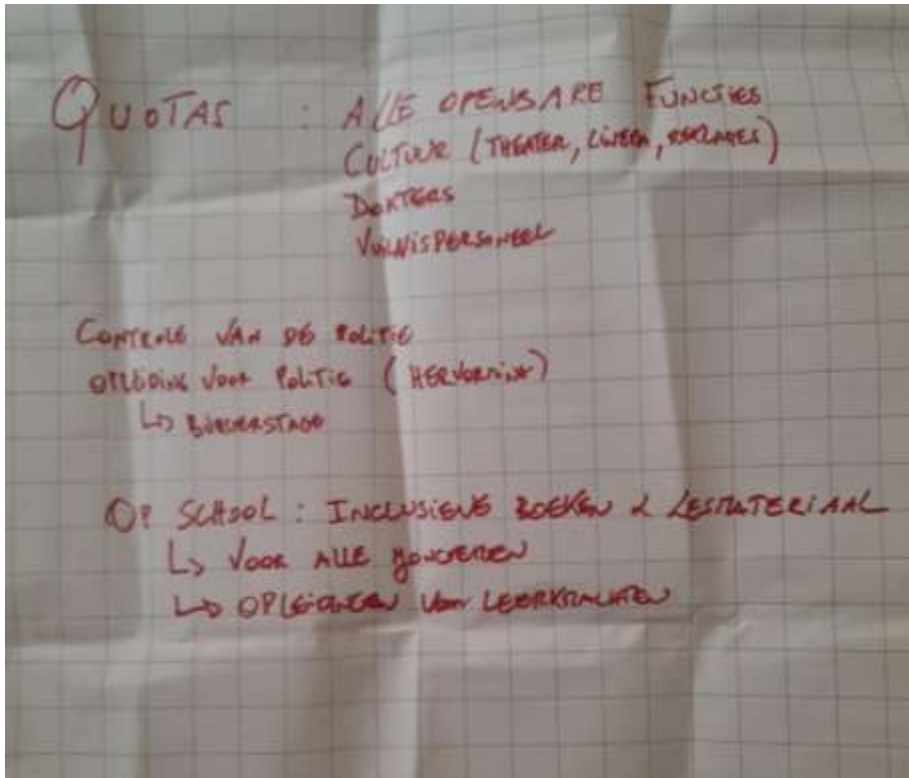 QUOTAS : ALLE OPENBARE FUNCTIES
CULTUUR (THEATER, CINEMA, REKLAMES)
DOKTERS
VUILNISPERSONEEL
CONTROLE VAN DE POLITIE
OPLEIDING VOOR POLITIE (HERVORMING)
↳ BURGERSTAGE
OP SCHOOL : INCLUSIEVE BOEKEN & LESMATERIAAL
↳ VOOR ALLE JONGEREN
↳ OPLEIDINGEN VAN LEERKRACHTEN